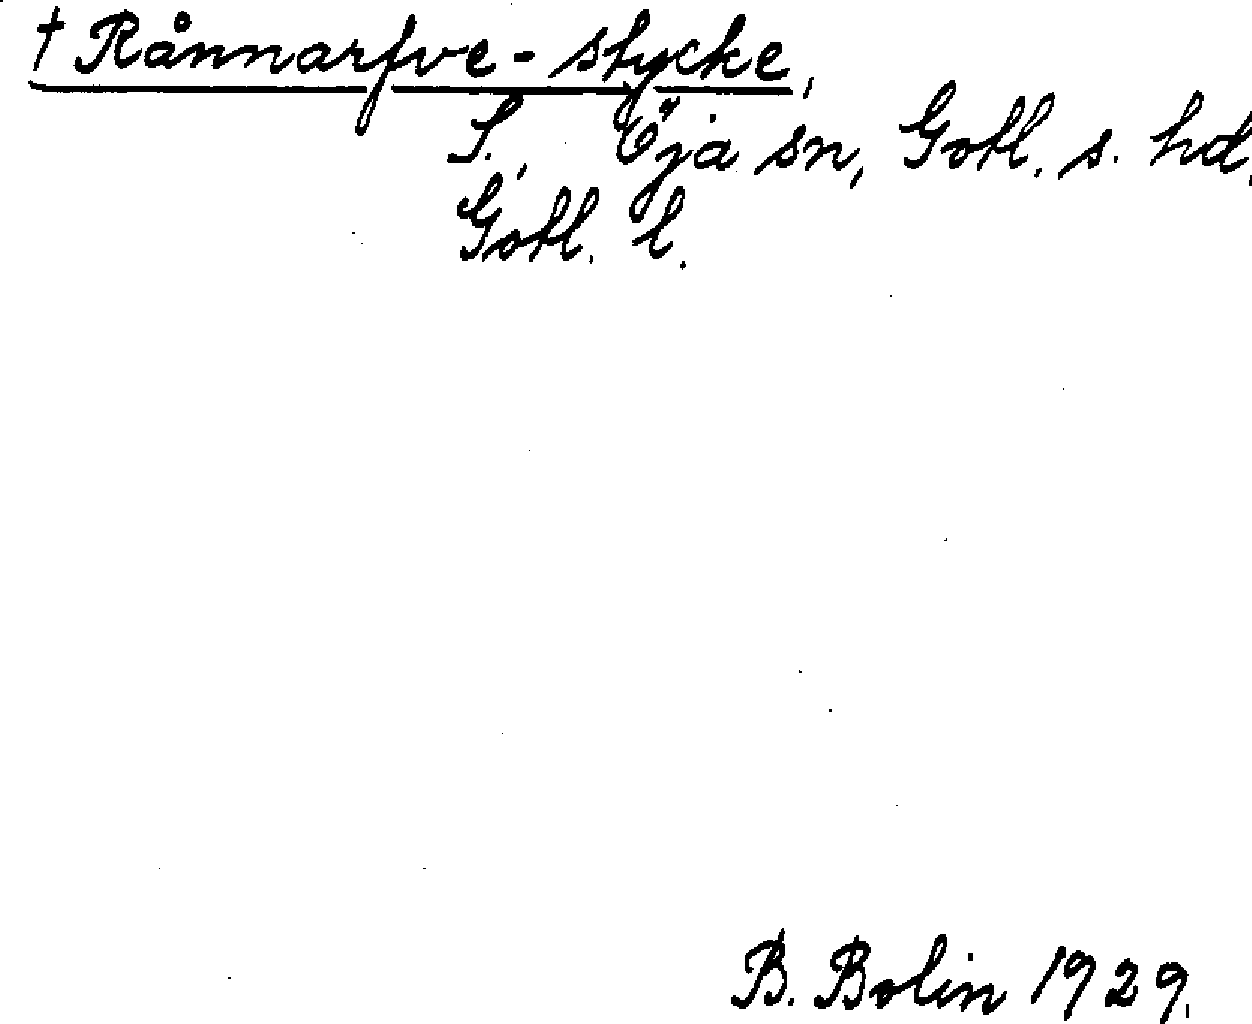 † Rånnarfve-stycke,
S., Öja sn, Gotl. s. hd,
Gotl. l.
B. Bolin 1929.